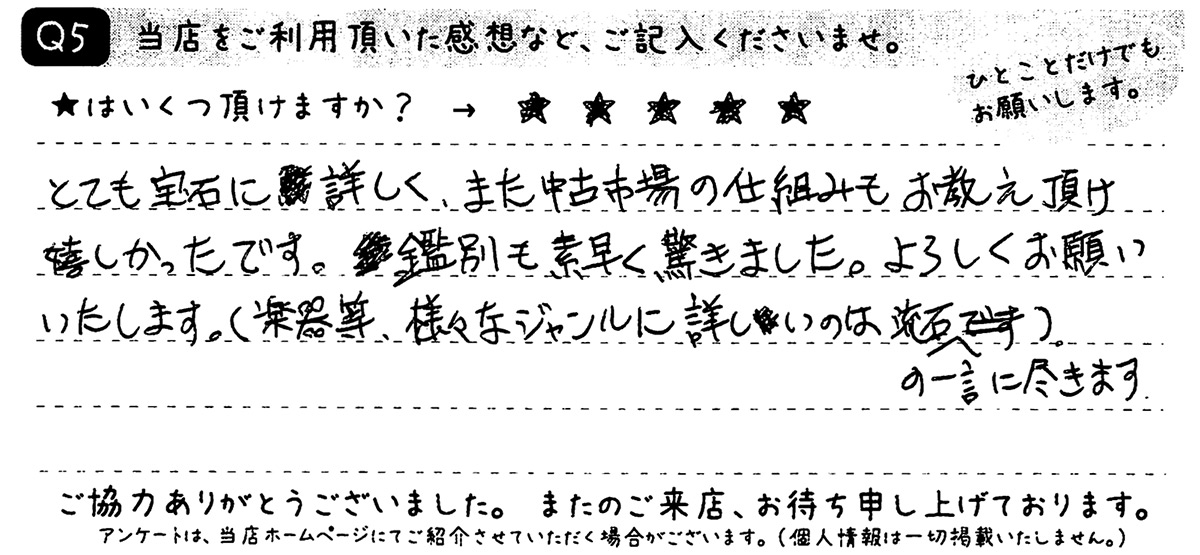 Q5 当店をご利用頂いた感想など、ご記入くださいませ。
ひとことだけでも
お願いします。
★はいくつ頂けますか? → ★ ★ ★ ★ ★
とても宝石に詳しく、また中古市場の仕組みもお教え頂け
嬉しかったです。鑑別も素早く驚きました。よろしくお願い
いたします。(楽器等、様々なジャンルに詳しいのは流石です)。
の一言に尽きます
ご協力ありがとうございました。 またのご来店、お待ち申し上げております。
アンケートは、当店ホームページにてご紹介させていただく場合がございます。(個人情報は一切掲載いたしません。)